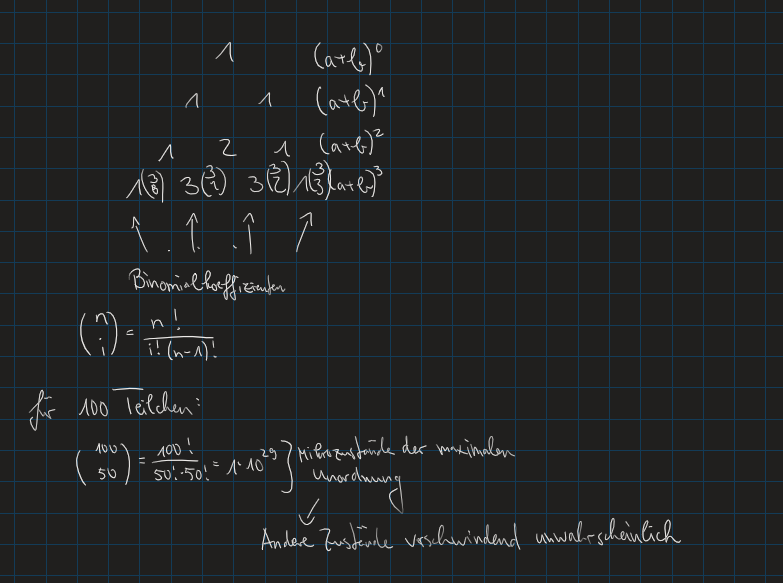 1 (a+b)^0
1 1 (a+b)^1
1 2 1 (a+b)^2
1(3 0) 3(3 1) 3(3 2) 1(3 3) (a+b)^3
Binomialkoeffizienten
(n i) = n! / i!(n-1)!
für 100 Teilchen:
(100 50) = 100! / 50!·50! = 1·10^29 } Mikrozustände der maximalen
Unordnung
Andere Zustände verschwindend unwahrscheinlich